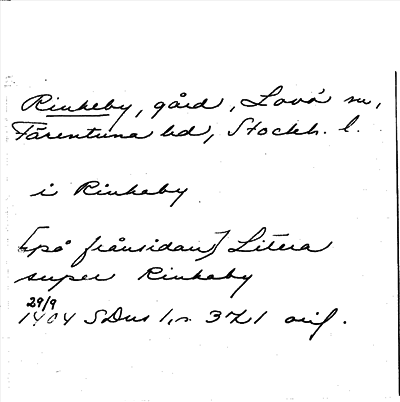 Rinkeby, gård, Lovö sn,
Färentuna hd, Stockh. l.
i Rinkaby
[på frånsidan] Litera
super Rinkaby
29/9
1404 SDns 1, nr 321 orig.